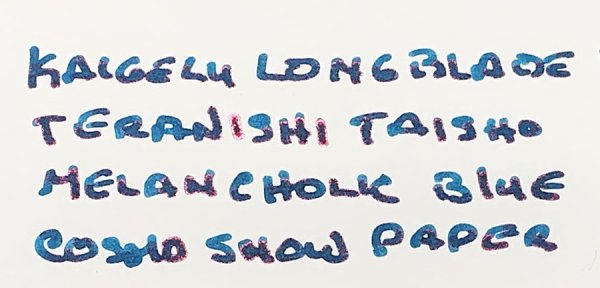 KAIGELU LONGBLADE
TERANISHI TAISHO
MELANCHOLIC BLUE
COSMO SNOW PAPER